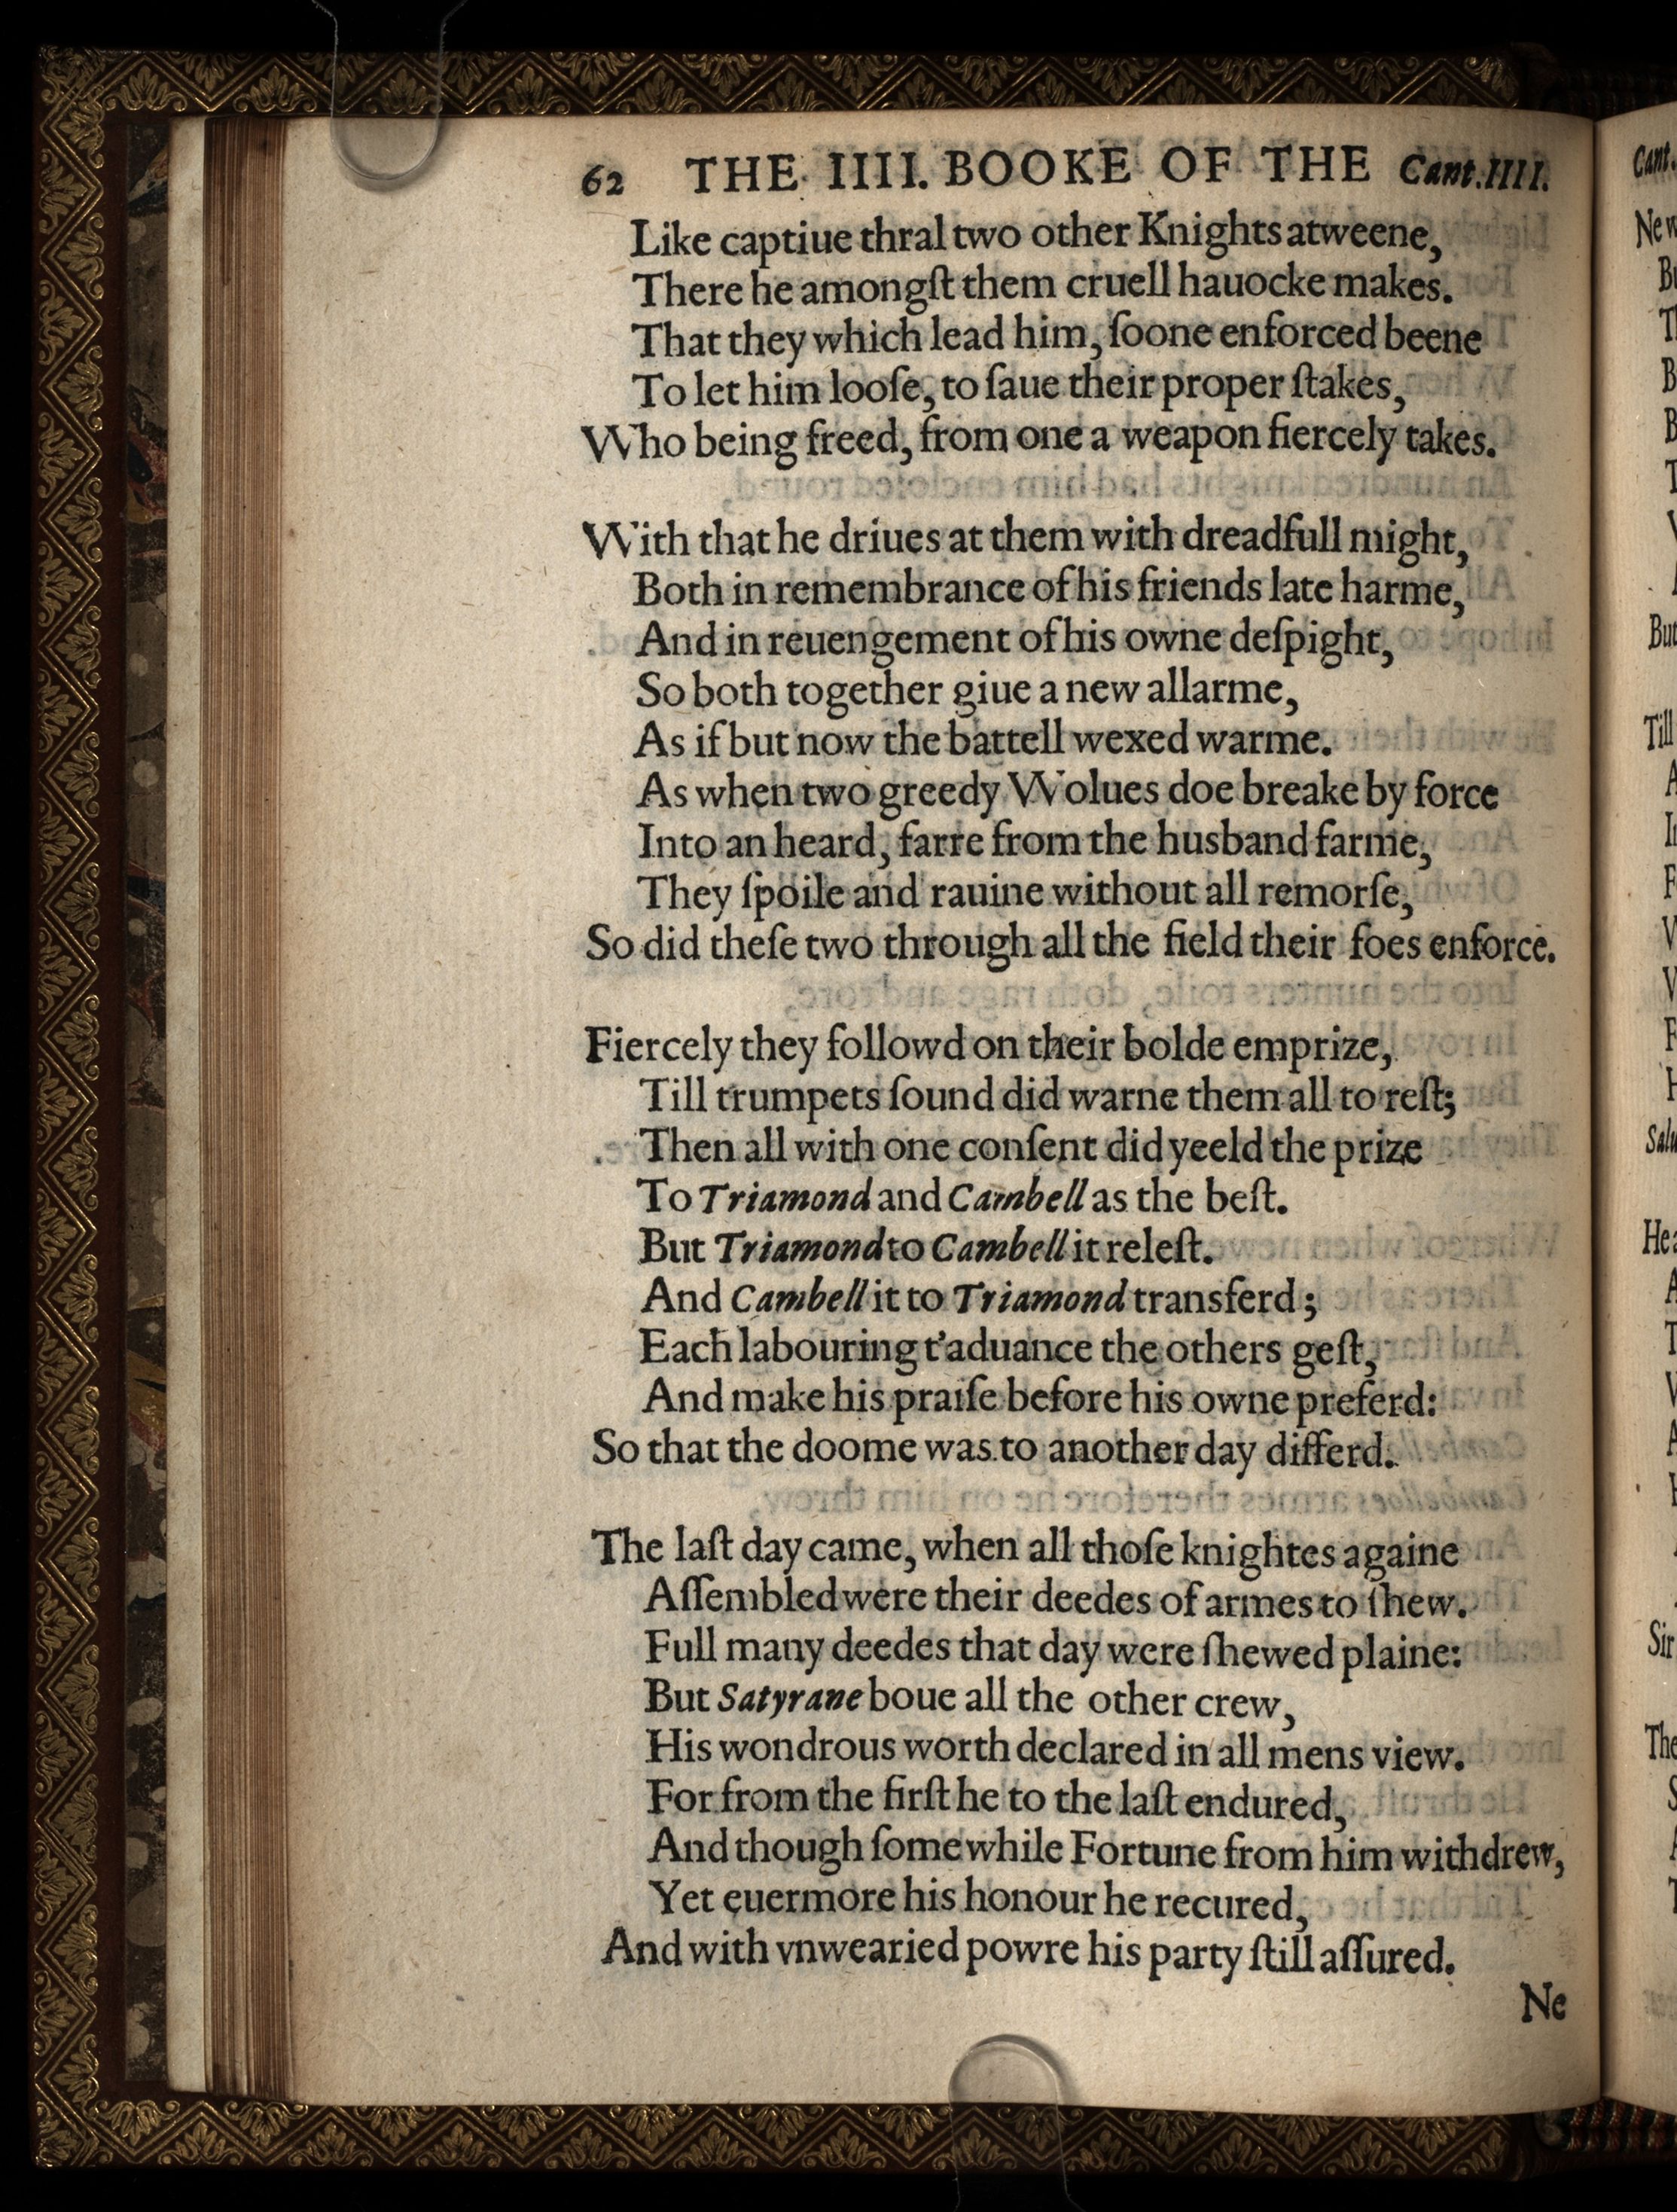 62 THE IIII. BOOKE OF THE Cant.IIII.
Like captiue thral two other Knights atweene,
There he amongſt them cruell hauocke makes.
That they which lead him, ſoone enforced beene
To let him looſe, to ſaue their proper ſtakes,
Who being freed, from one a weapon fiercely takes.
With that he driues at them with dreadfull might,
Both in remembrance of his friends late harme,
And in reuengement of his owne deſpight,
So both together giue a new allarme,
As if but now the battell wexed warme.
As when two greedy Wolues doe breake by force
Into an heard, farre from the husband farme,
They ſpoile and rauine without all remorſe,
So did theſe two through all the field their foes enforce.
Fiercely they followd on their bolde emprize,
Till trumpets ſound did warne them all to reſt;
Then all with one conſent did yeeld the prize
To Triamond and Cambell as the beſt.
But Triamond to Cambell it releſt.
And Cambell it to Triamond transferd;
Each labouring t'aduance the others geſt,
And make his praiſe before his owne preferd:
So that the doome was to another day differd.
The laſt day came, when all thoſe knightes againe
Aſſembled were their deedes of armes to ſhew.
Full many deedes that day were ſhewed plaine:
But Satyrane boue all the other crew,
His wondrous worth declared in all mens view.
For from the firſt he to the laſt endured,
And though ſome while Fortune from him withdrew,
Yet euermore his honour he recured,
And with vnwearied powre his party ſtill aſſured.
Ne
Cant.
But
Till
Sir
The